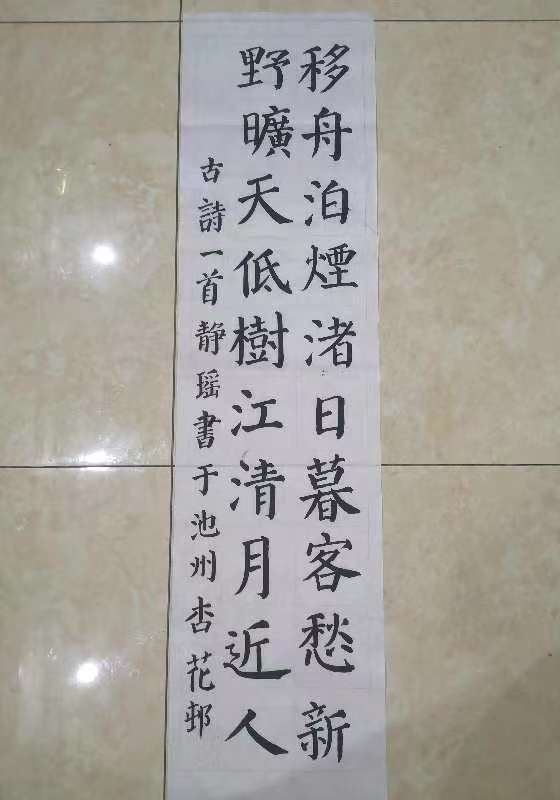 移舟泊煙渚日暮客愁新
野曠天低樹江清月近人
古詩一首静瑶書于池州杏花邨